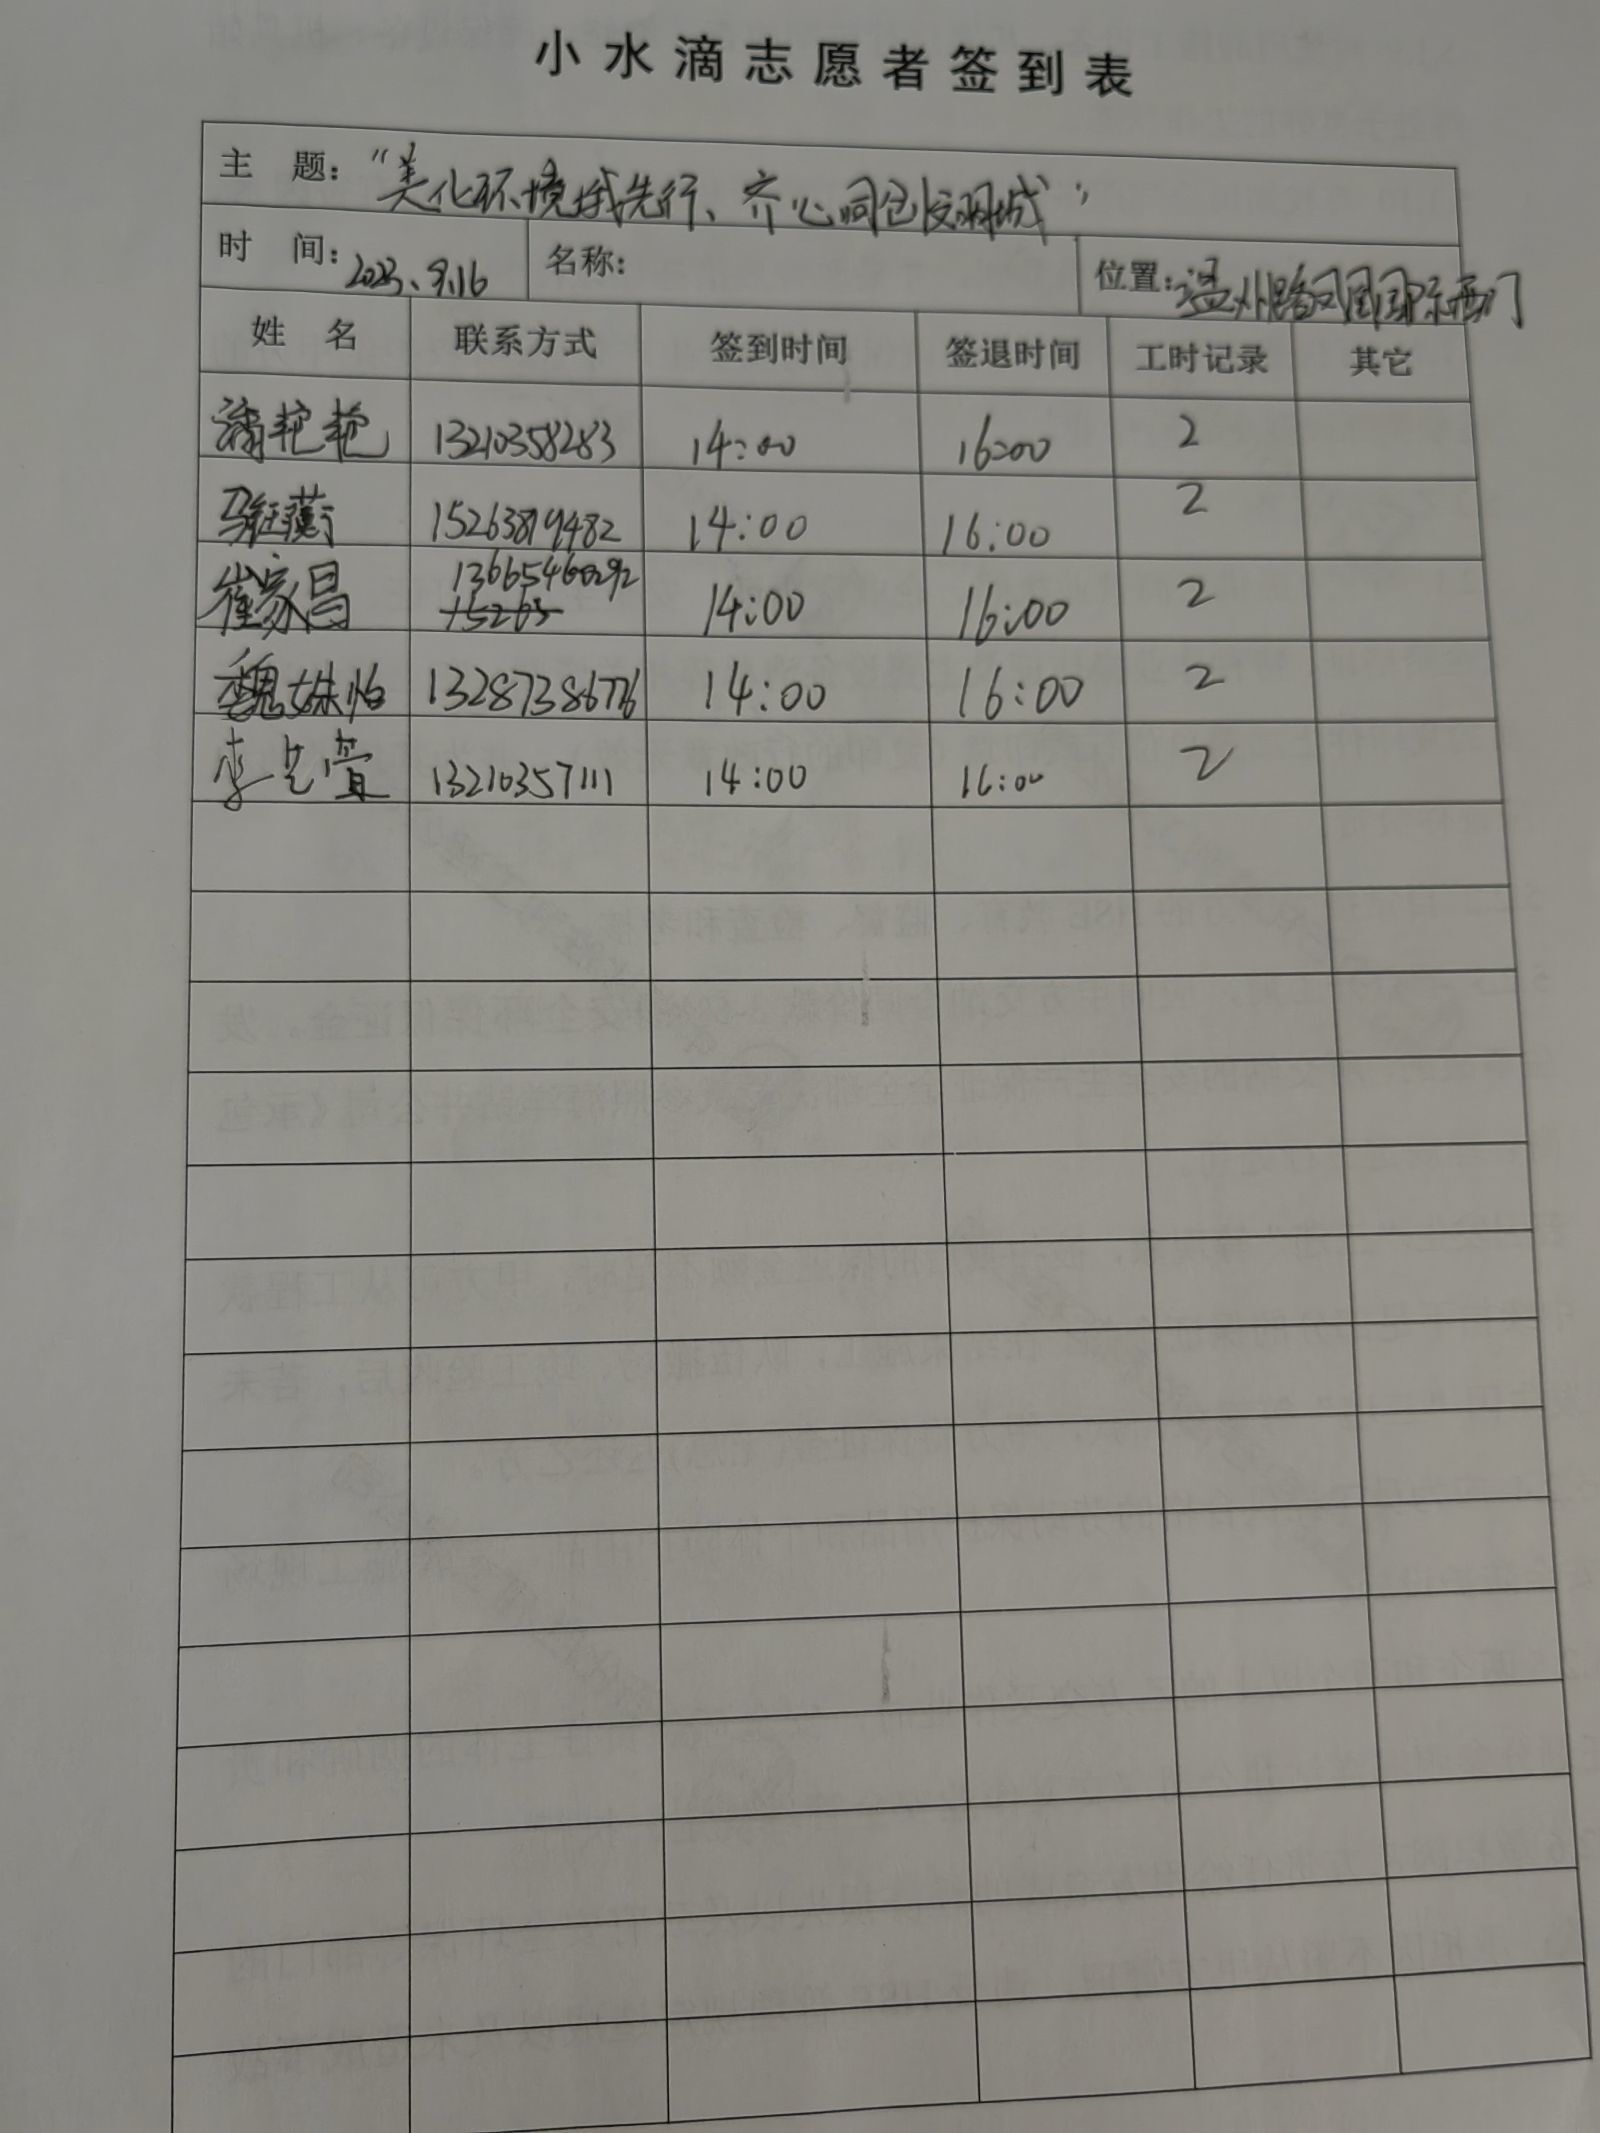 小水滴志愿者签到表
主 题：“美化环境我先行、齐心同创文明城”
时 间：2023.9.16 名称： 位置：温州路凤凰国际西门
姓 名 联系方式 签到时间 签退时间 工时记录 其它
潘艳艳 13210358283 14:00 16:00 2
马钰薇 15263819482 14:00 16:00 2
崔家昌 13665460292 14:00 16:00 2
15263
魏姝怡 13287386776 14:00 16:00 2
李艺萱 13210357111 14:00 16:00 2